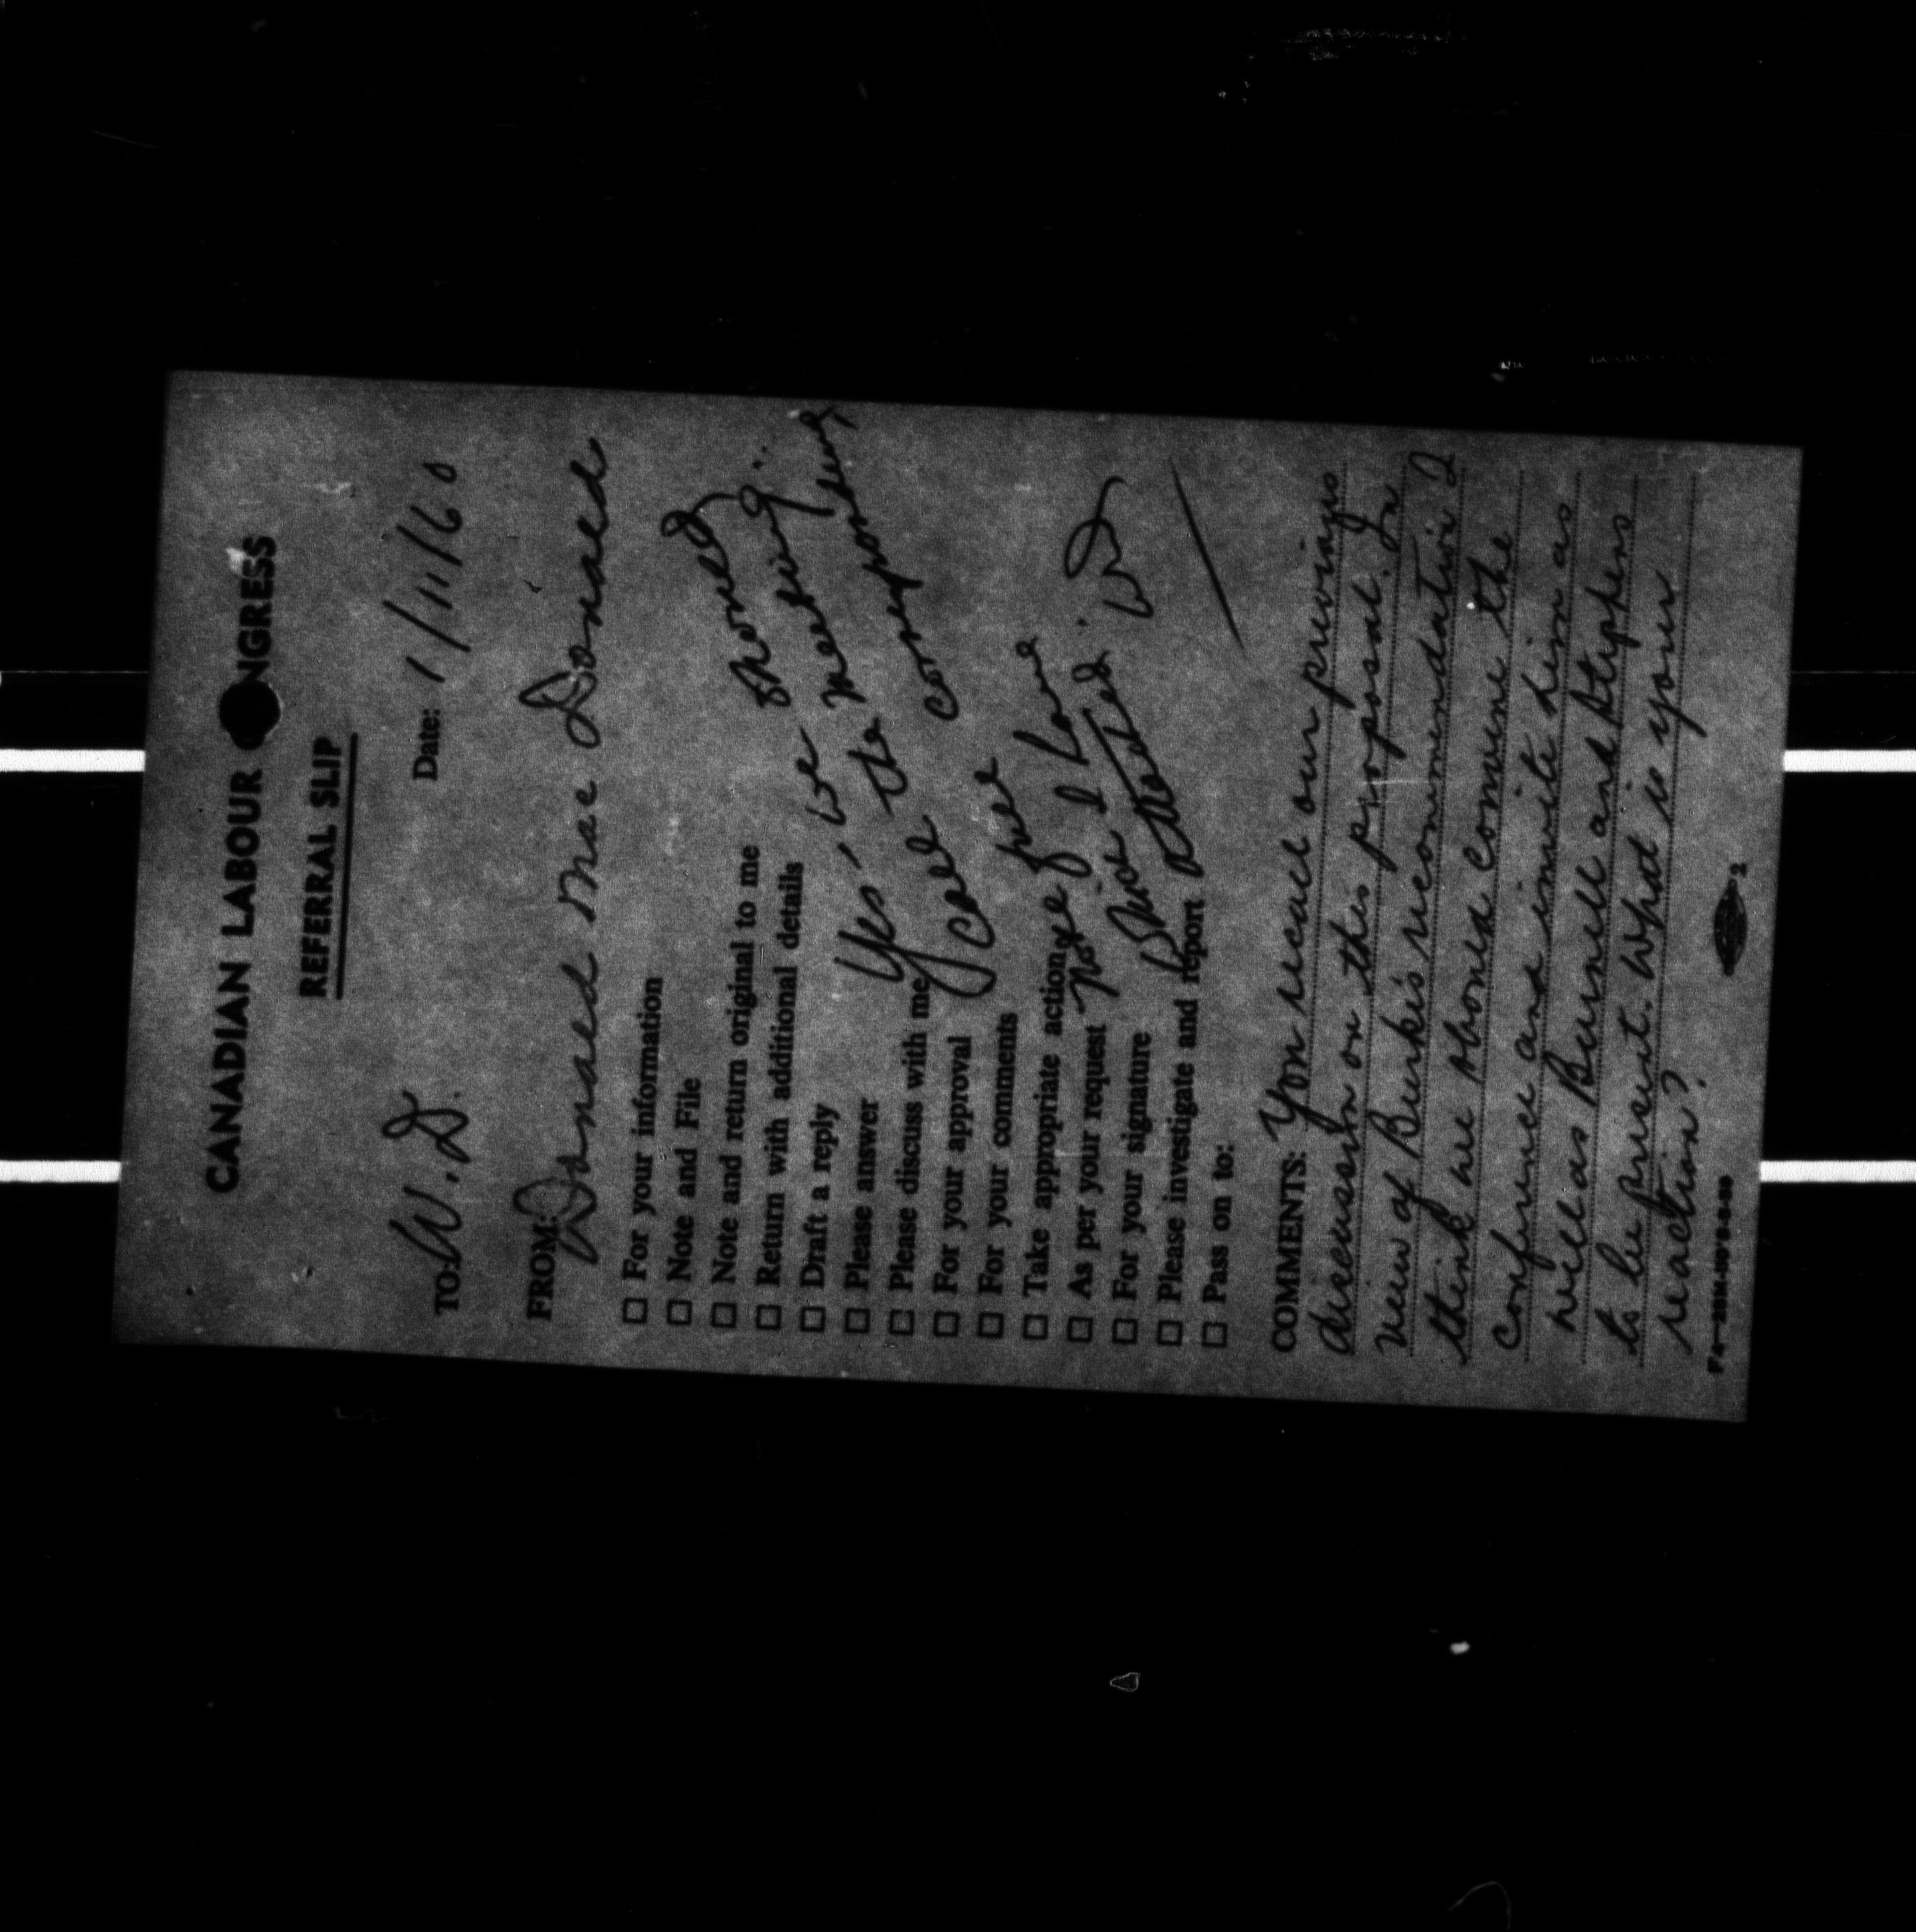 CANADIAN LABOUR CONGRESS
REFERRAL SLIP
Date: 1/11/60
TO: W. D.
FROM: Donald MacDonald
☐ For your information
☐ Note and File
☐ Note and return original to me
☐ Return with additional details
☐ Draft a reply
☐ Please answer
☐ Please discuss with me
☐ For your approval
☐ For your comments
☐ Take appropriate action
☐ As per your request
☐ For your signature
☐ Please investigate and report
☐ Pass on to:
Yes, we should
call the meeting
see the correspondence
I have
attached. WD
COMMENTS: You recall our previous
discussion on this proposal. In
view of Burke's recommendation I
think we should convene the
conference and invite him as
well as Burnell and Stephens
to be present. What is your
reaction?